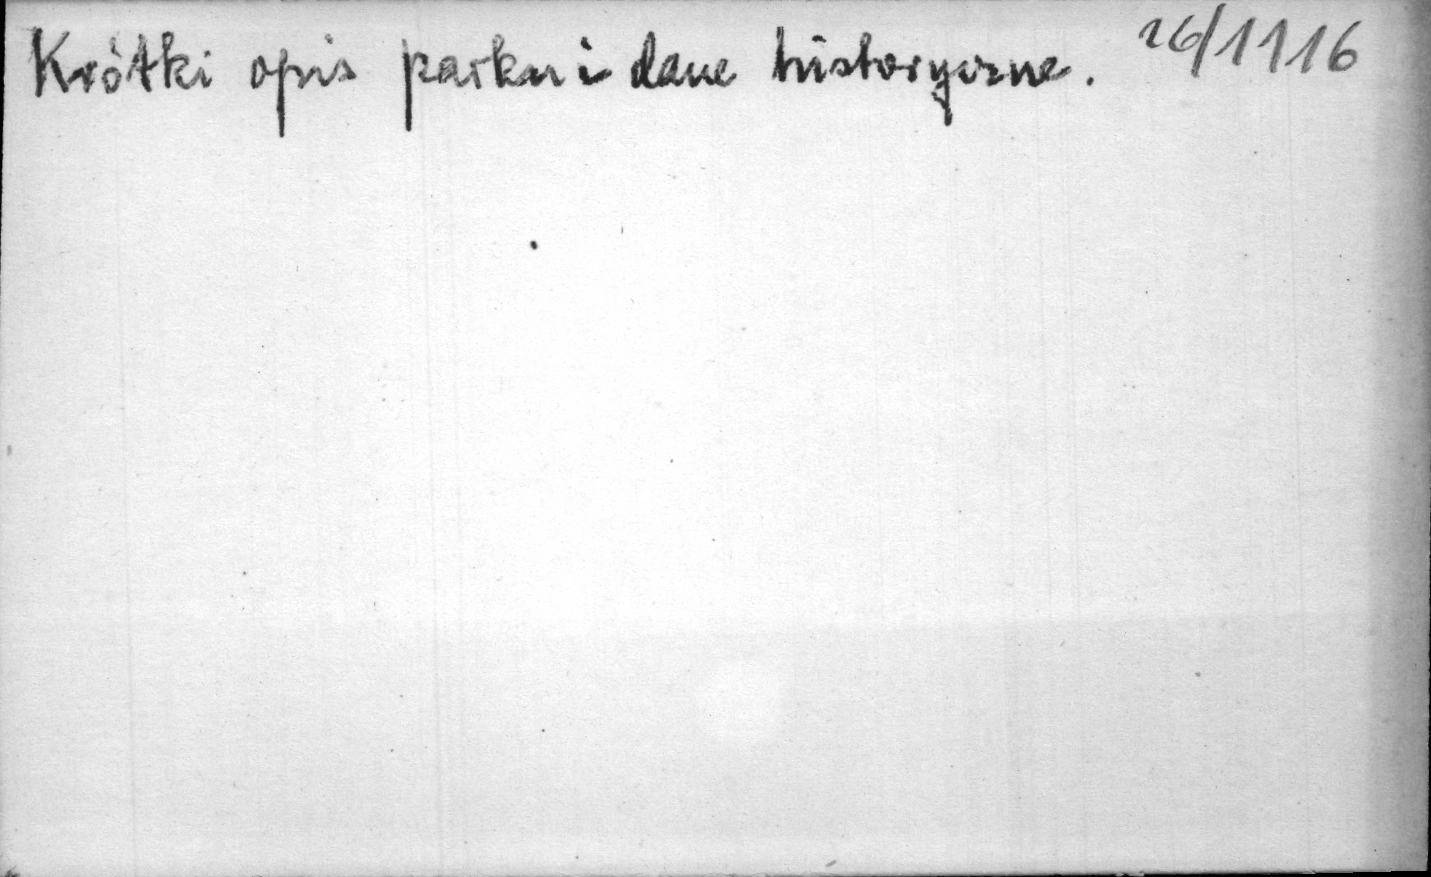 Krótki opis parku i dane historyczne. 26/1116